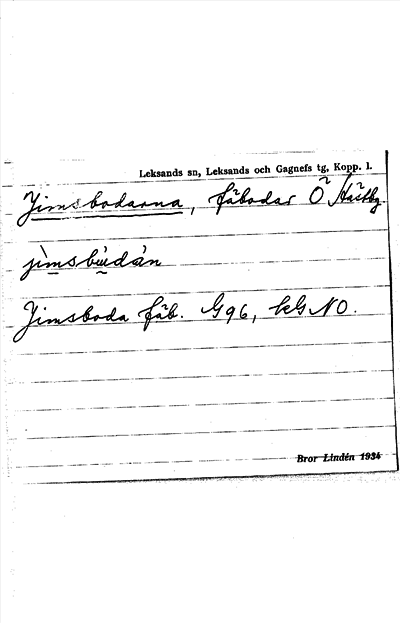 Leksands sn, Leksands och Gagnefs tg, Kopp. l.
Jimsbodarna, fäbodar Ö
jìmsbùdàn
Jimsboda fäb. G96, kGNO.
Bror Lindén 1934